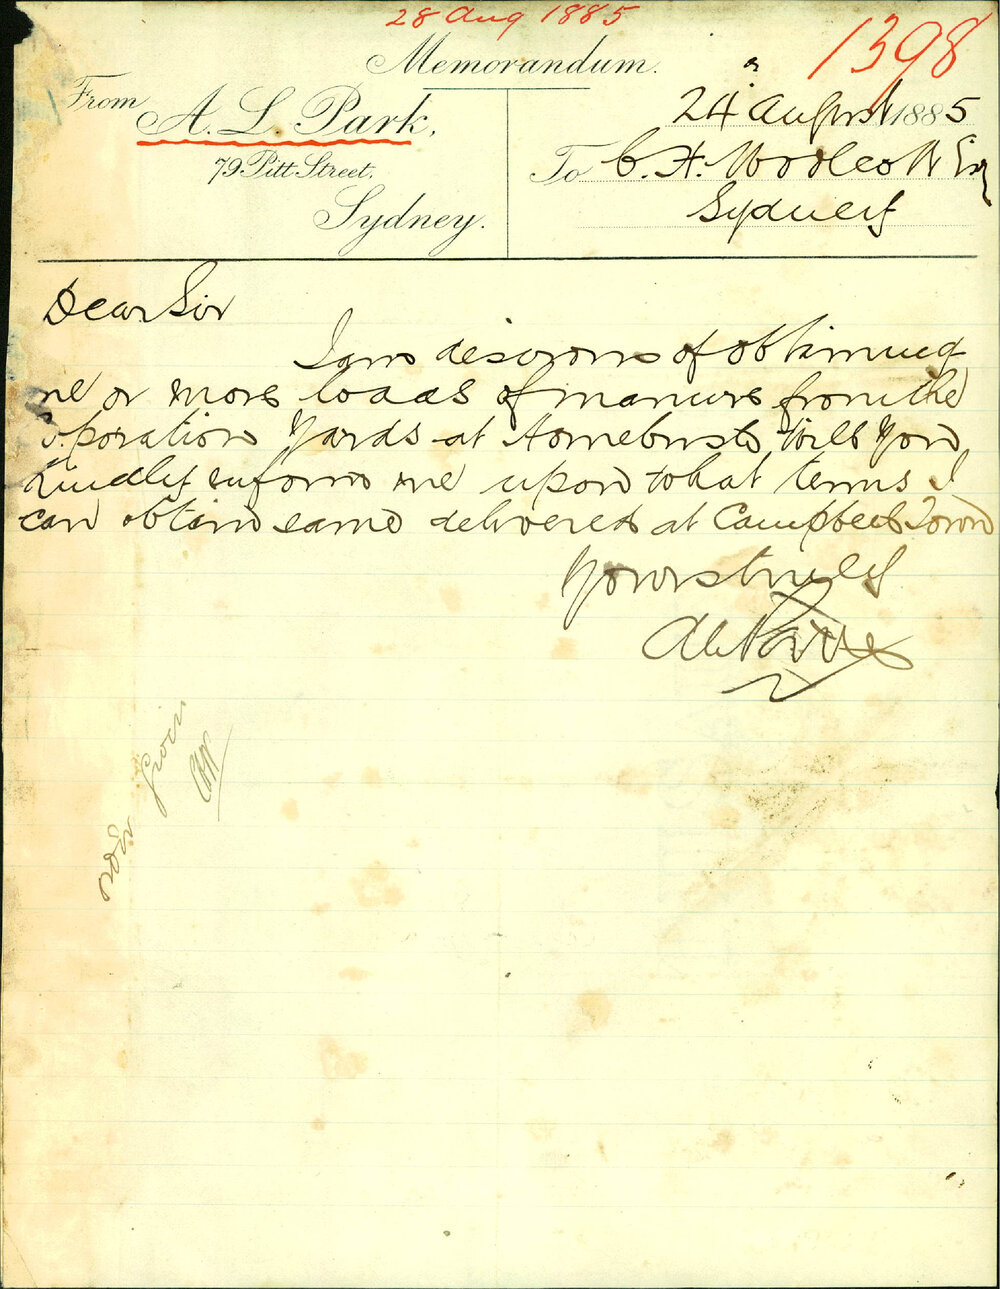 28 Aug 1885
1398
Memorandum.
From
A. L. Park,
79 Pitt Street,
Sydney.
24 August 1885
To C. H. Woolcott Esq
Sydney
Dear Sir
I am desirous of obtaining
ne or more loads of manure from the
rporation Yards at Homebush Will you
Kindly inform me upon what terms I
can obtain same delivered at Campbell Town
Yours truly
A L Park